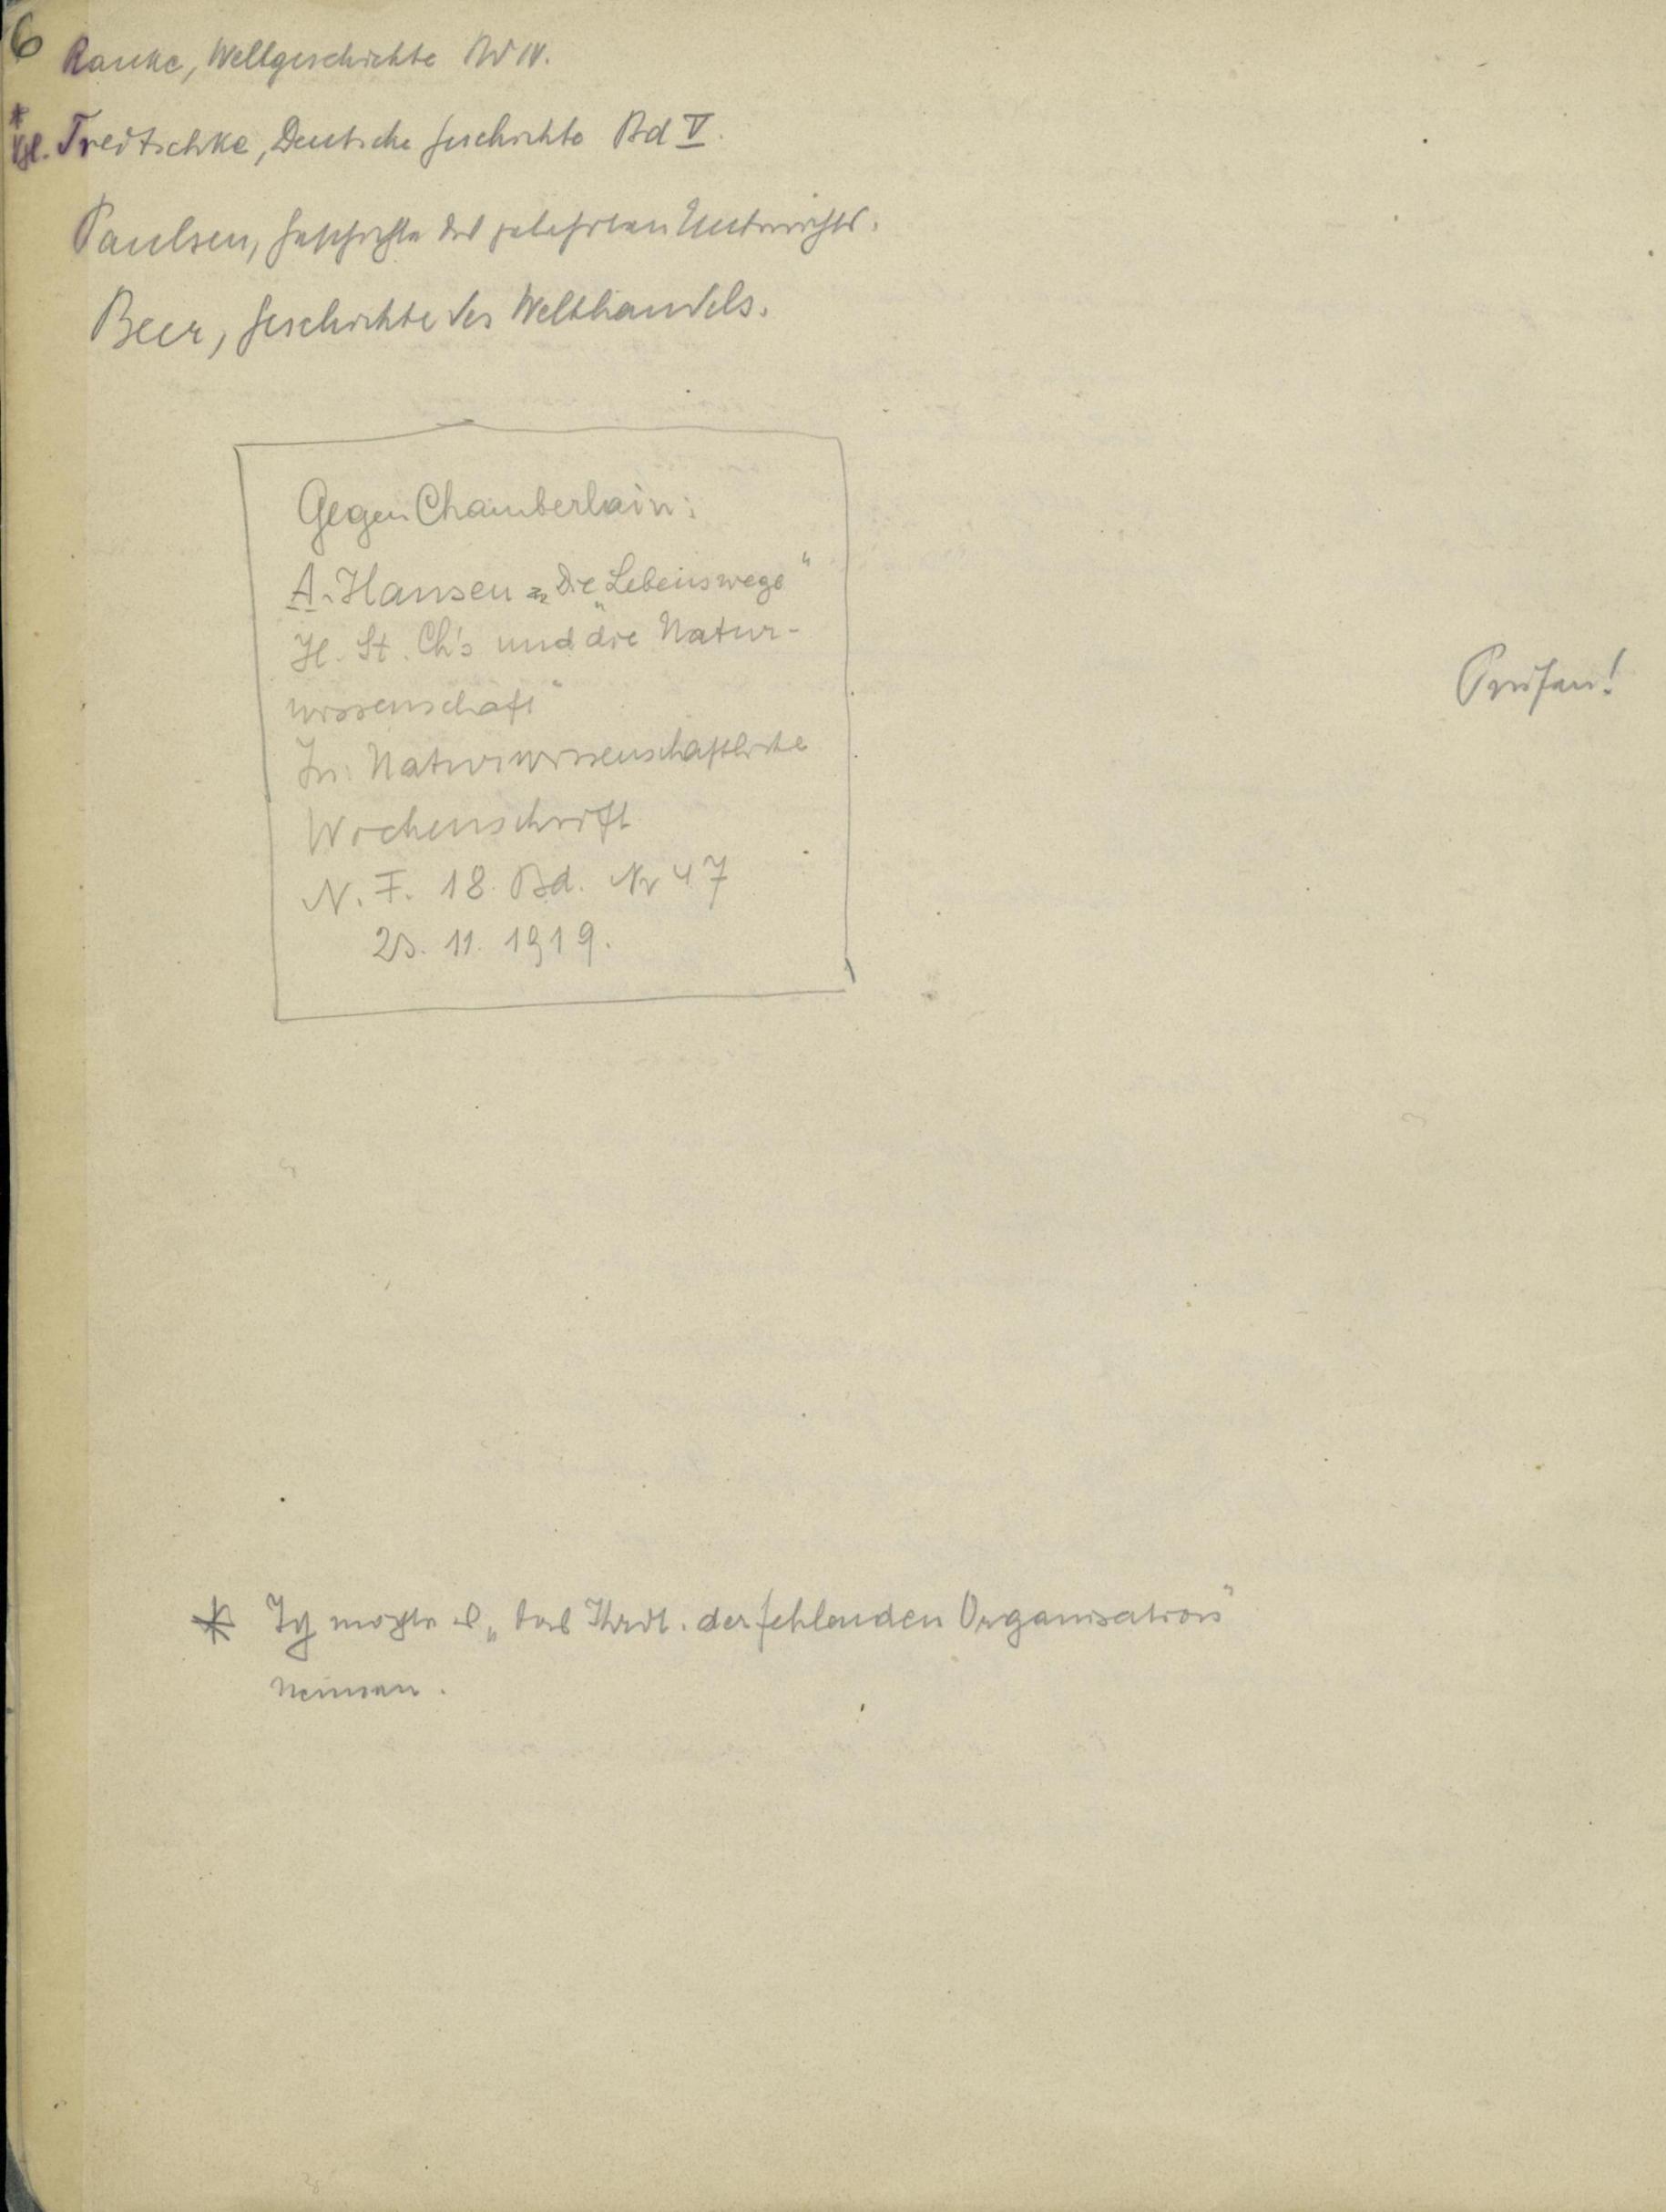 6 Ranke, Weltgeschichte Bd IV.
* Vgl. Treitschke, Deutsche Geschichte Bd V.
Paulsen, Geschichte des gelehrten Unterrichts.
Beer, Geschichte des Welthandels.
Gegen Chamberlain:
A. Hansen „Die „Lebenswege“
H. St. Ch's und die Natur-
wissenschaft“
In: Naturwissenschaftliche
Wochenschrift
N. F. 18. Bd. Nr 47
23. 11. 1919.
Prüfen!
* Ich möchte es „das der fehlenden Organisation“
nennen.